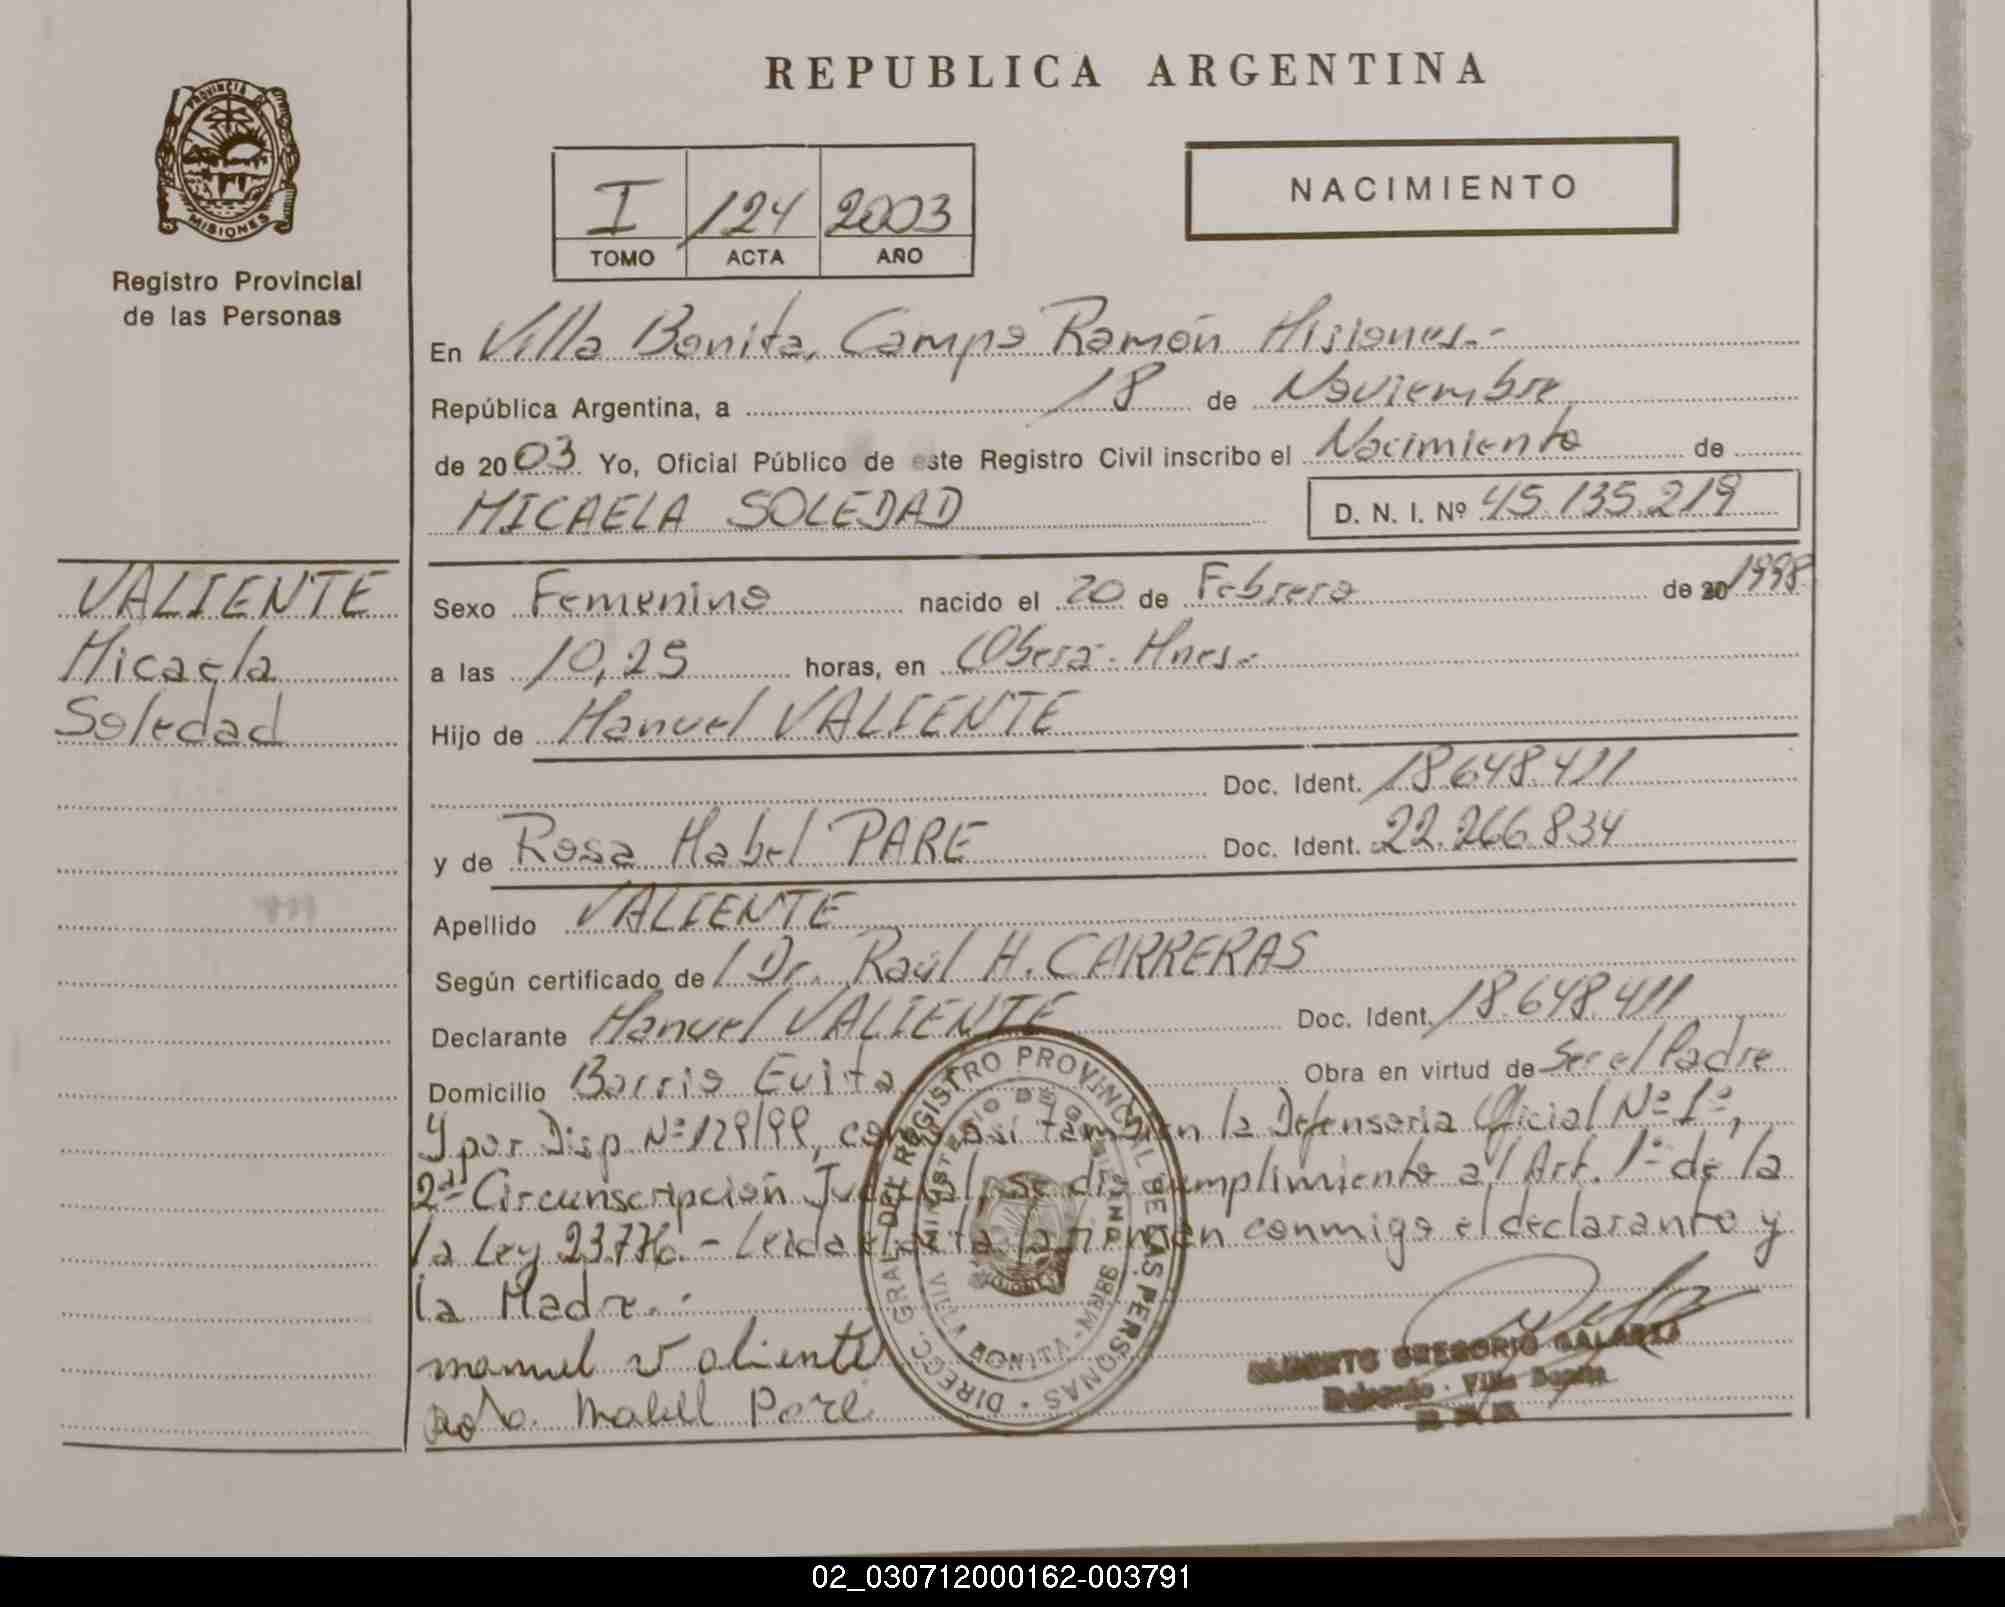 REPUBLICA ARGENTINA
PROVINCIA DE
MISIONES
Registro Provincial
de las Personas
I 124 2003
TOMO ACTA AÑO
NACIMIENTO
En Villa Bonita, Campo Ramón Misiones.-
República Argentina, a 18 de Noviembre
de 2003 Yo, Oficial Público de este Registro Civil inscribo el Nacimiento de
MICAELA SOLEDAD D. N. I. Nº 45.135.219
VALIENTE
Micaela
Soledad
Sexo Femenino nacido el 20 de Febrero de 20 1998
a las 10,25 horas, en Oberá - Mnes.-
Hijo de Manuel VALIENTE
Doc. Ident. 18.648.411
y de Rosa Mabel PARE Doc. Ident. 22.266.834
Apellido VALIENTE
Según certificado de / Dr. Raúl H. CARRERAS
Declarante Manuel VALIENTE Doc. Ident. 18.648.411
Domicilio Barrio Evita Obra en virtud de Ser el Padre
y por Disp. Nº 129/99, como así también la Defensoria Oficial Nº 1º,
2da Circunscripción Judicial, se dió cumplimiento al Art. 1º de la
la Ley 23.776.- Leida el acta la firman conmigo el declarante y
la Madre.-
manuel valiente
Mabell Pare
DIRECC. GRAL. DEL REGISTRO PROVINCIAL DE LAS PERSONAS
MINISTERIO DE GOBIERNO
VILLA BONITA - MNES
GREGORIO GALARZA
Delegado - Villa Bonita
02_030712000162-003791